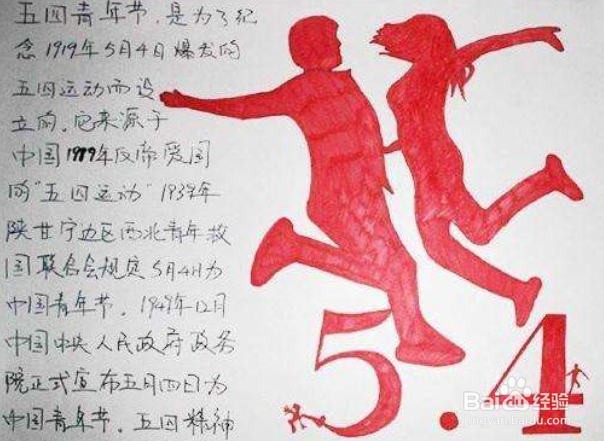 五四青年节，是为了纪
念1919年5月4日爆发的
五四运动而设
立的，它来源于
中国1919年反帝爱国
的"五四运动"1939年
陕甘宁边区西北青年救
国联合会规定5月4日为
中国青年节。1949年12月
中国中央人民政府政务
院正式宣布五月四日为
中国青年节。五四精神
5.4
Baidu经验
jingyan.baidu.com